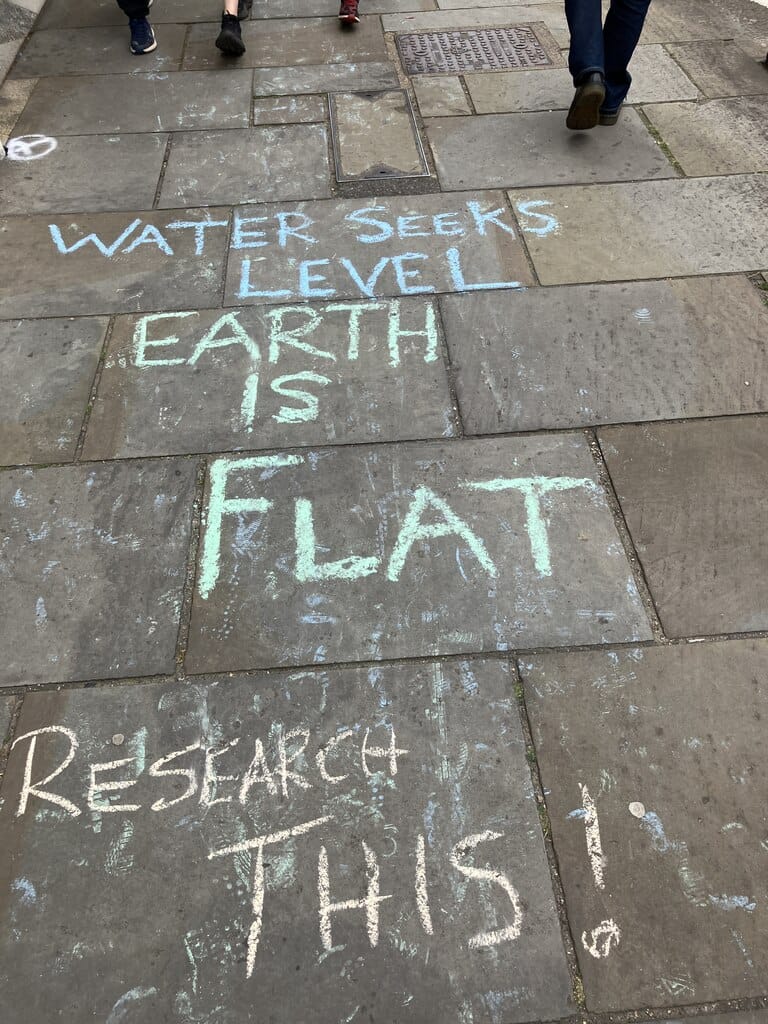 WATER SEEKS
LEVEL
EARTH
IS
FLAT
RESEARCH
THIS !